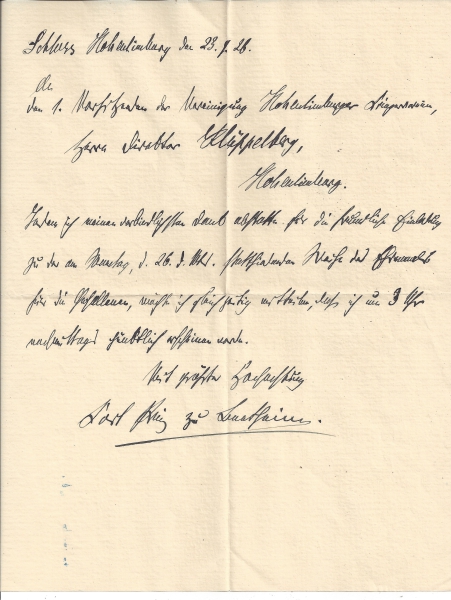 Schloss Hohenlimburg den 23. 9. 26.
An
den 1. Vorsitzenden der Vereinigung Hohenlimburger
Herrn Direktor Klüppelberg,
Hohenlimburg.
Indem ich meinen verbindlichsten Dank abstatte für die freundliche Einladung
zu der am Sonntag, d. 26. d. Mts. stattfindenden Weihe des Ehrenmals
für die Gefallenen, möchte ich gleichzeitig mitteilen, dass ich um 3 Uhr
nachmittags pünktlich erscheinen werde.
Mit größter Hochachtung
Karl Prinz zu Bentheim.